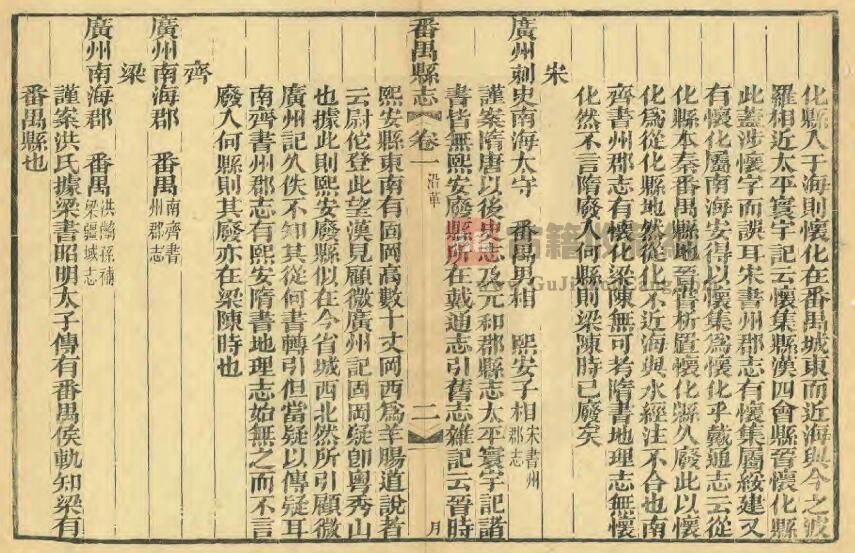 化縣入于海則懷化在番禺城東而近海與今之波
羅相近太平寰宇記云懷集縣漢四會縣晉懷化縣
此蓋涉懷字而誤耳宋書州郡志有懷集屬綏建又
有懷化屬南海安得以懷集爲懷化乎戴通志云從
化縣本秦番禺縣地晉析置懷化縣久廢此以懷
化爲從化縣地然從化不近海與水經注不合也南
齊書州郡志有懷化梁陳無可考隋書地理志無懷
化然不言隋廢入何縣則梁陳時已廢矣
宋
廣州刺史南海太守 番禺男相 熙安子相宋書州郡志
謹案隋唐以後史志及元和郡縣志太平寰宇記諸
書皆無熙安廢縣所在戴通志引舊志雜記云晉時
番禺縣志 卷一 沿革 二 月
熙安縣東南有固岡高數十丈岡西爲羊腸道說者
云尉佗登此望漢見顧微廣州記固岡疑卽粵秀山
也據此則熙安廢縣似在今省城西北然所引顧微
廣州記久佚不知其從何書轉引但當疑以傳疑耳
南齊書州郡志有熙安隋書地理志始無之而不言
廢入何縣則其廢亦在梁陳時也
齊
廣州南海郡 番禺南齊書州郡志
梁
廣州南海郡 番禺洪齮孫補梁疆域志
謹案洪氏據梁書昭明太子傳有番禺侯軌知梁有
番禺縣也